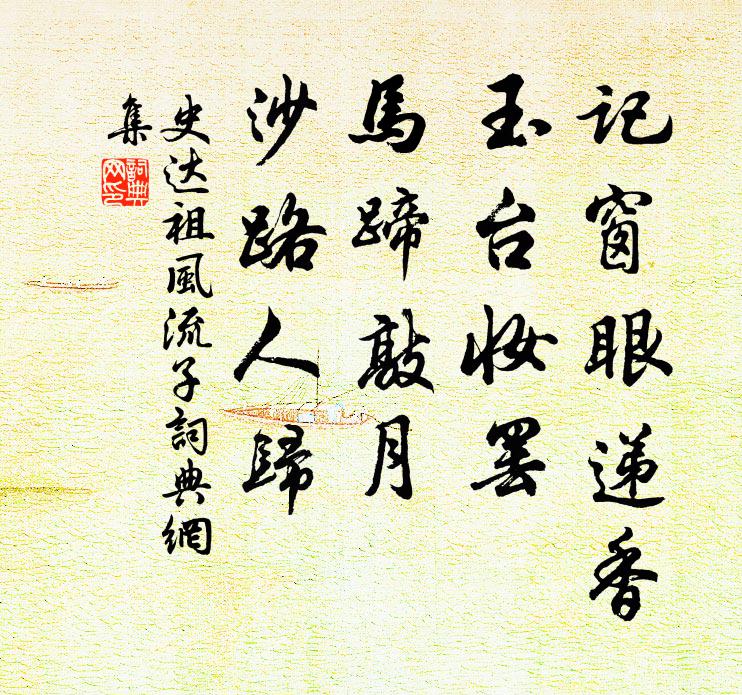 记窗眼递香
玉台妆罢
馬蹄敲月
沙路人歸
史达祖風流子詞典網
集
詞典网印